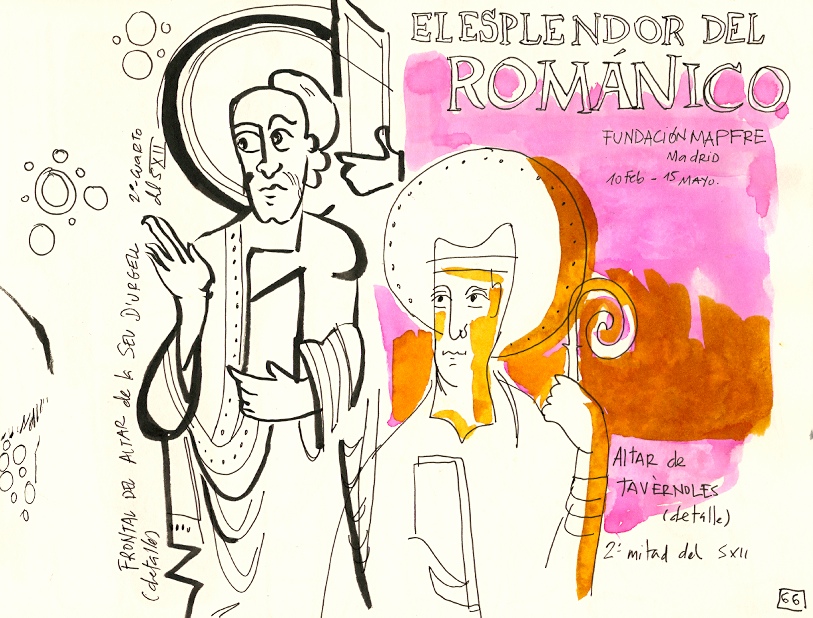 EL ESPLENDOR DEL
ROMÁNICO
FUNDACIÓN MAPFRE
Madrid
10 Feb - 15 MAYO.
FRONTAL DEL ALTAR de la SEU D'URGELL 2º CUARTO
(detalle)
del SXII
Altar de
TAVÈRNOLES
(detalle)
2ª mitad del SXII
66